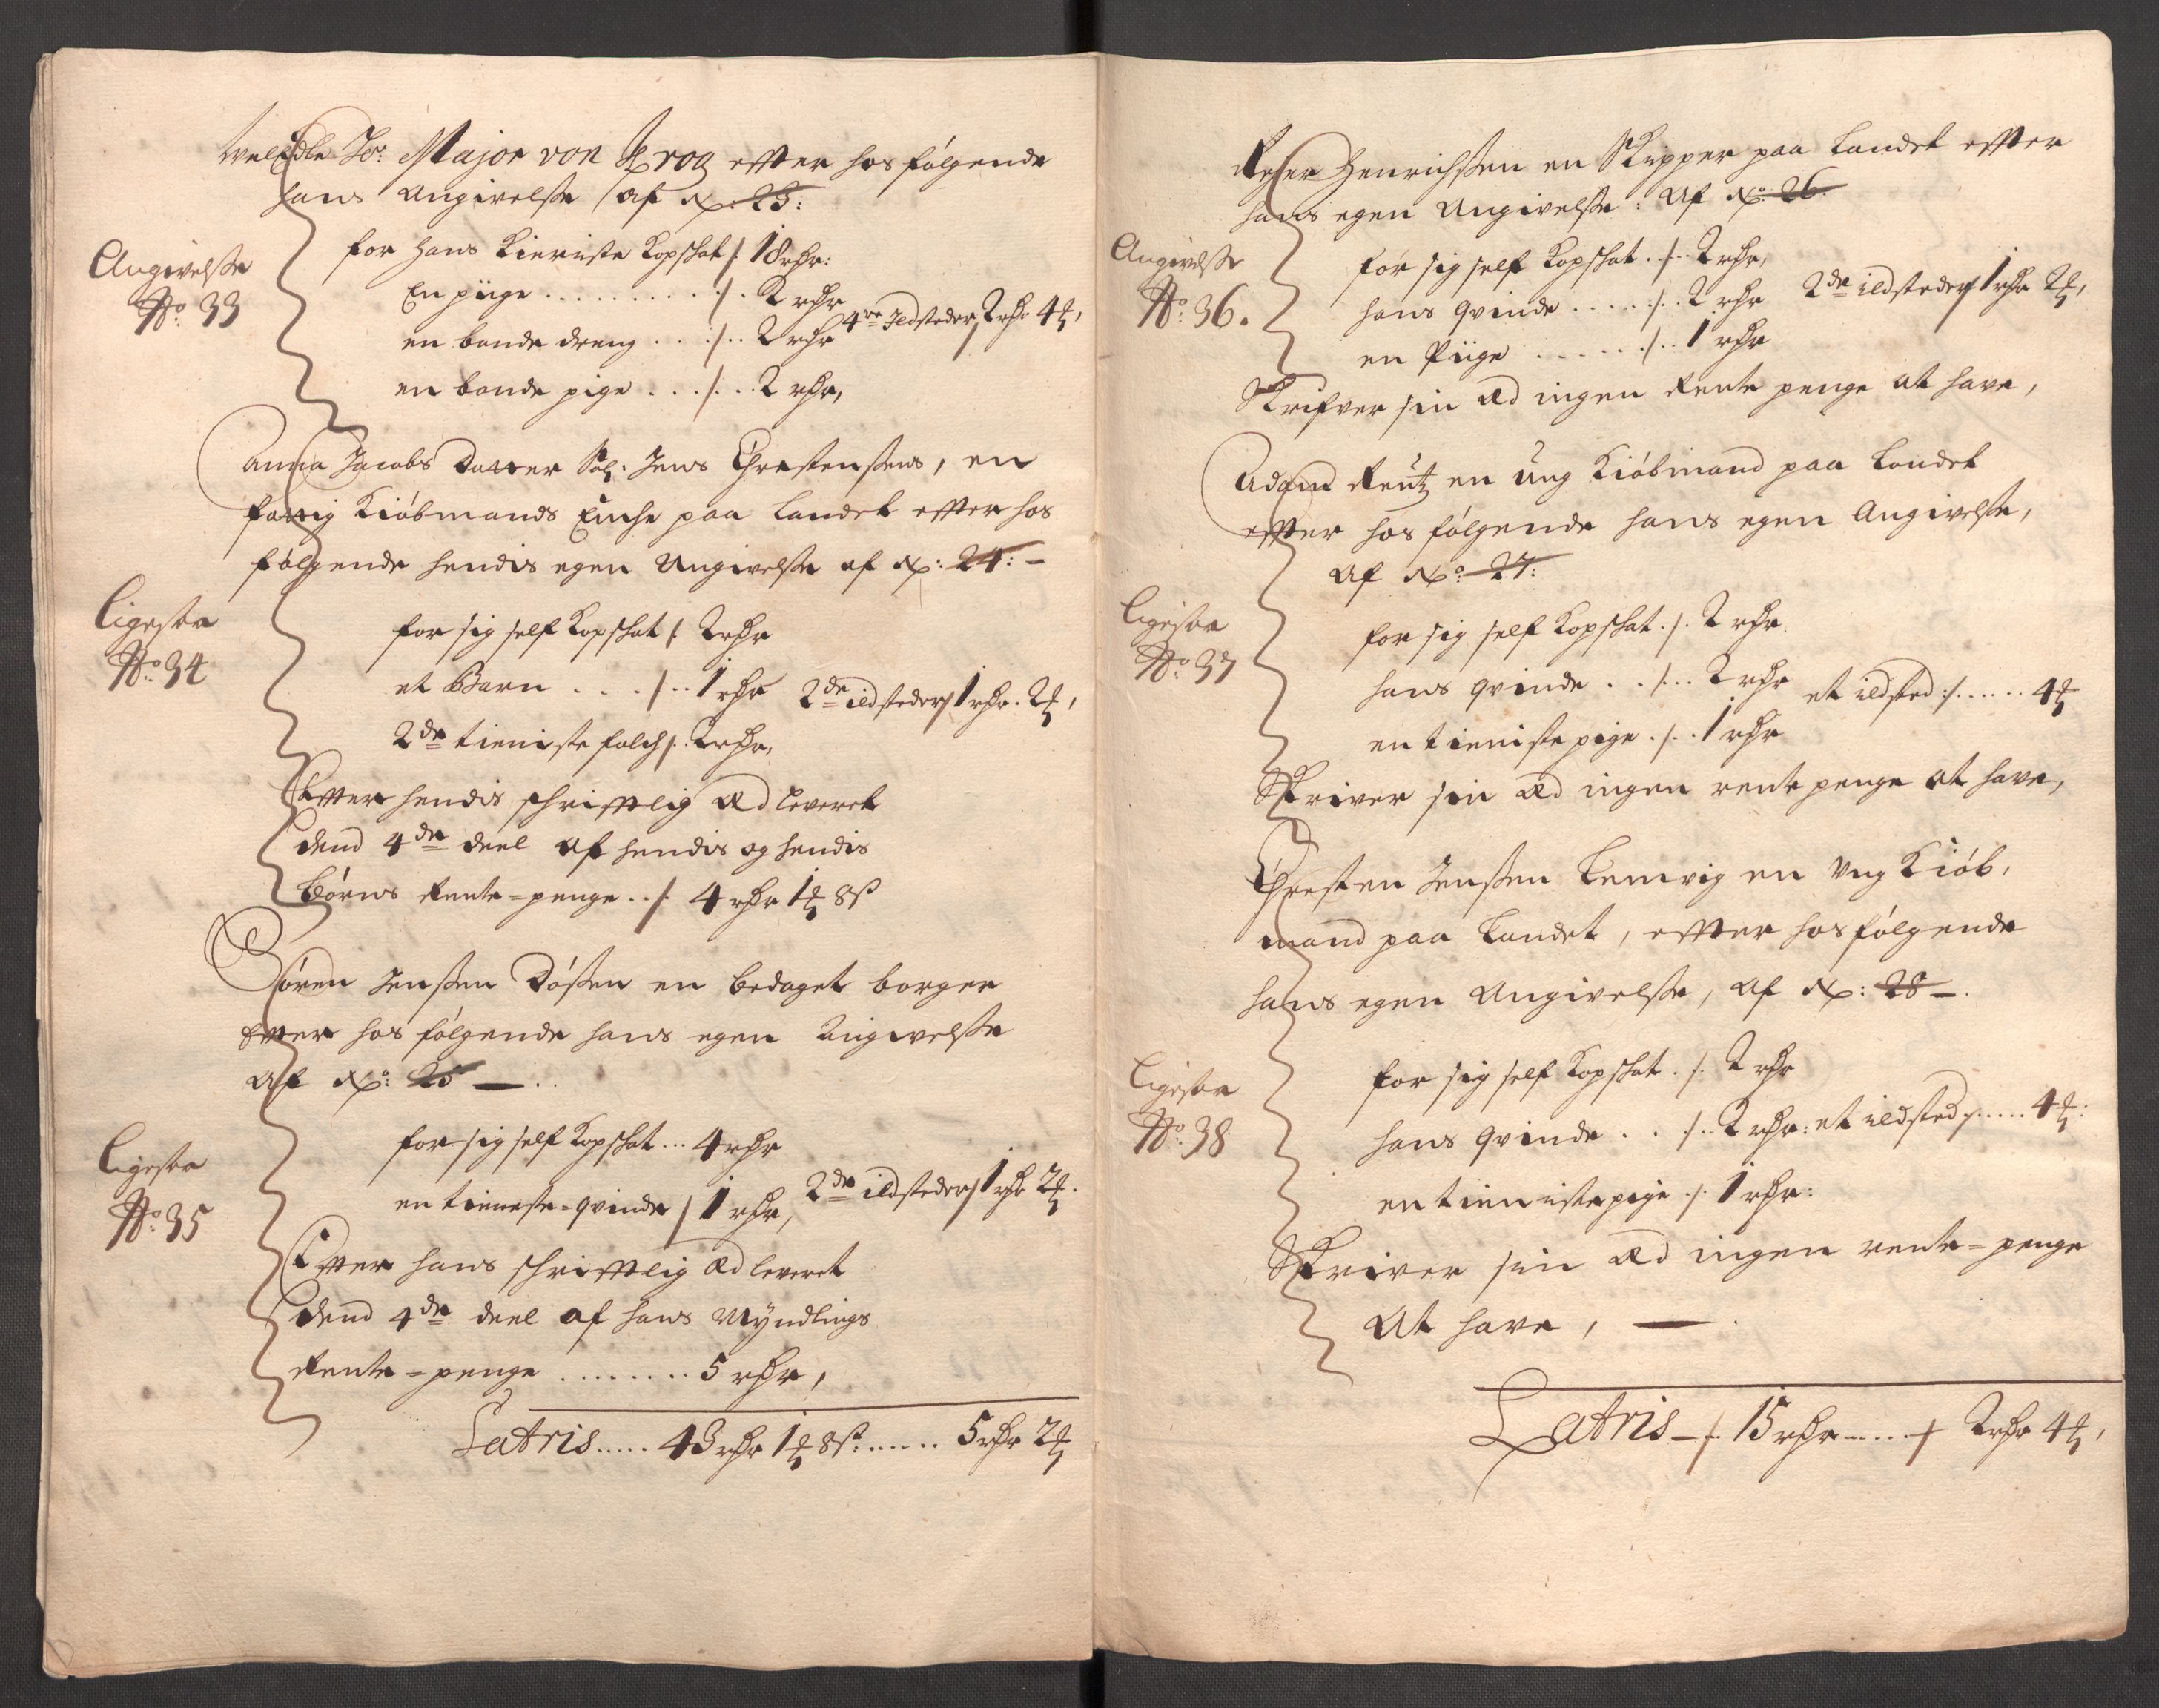 WelEdle Hr: Major von Krog effter hos følgende
hans Angivelsse af No: 23:
Angivelsse
No: 33
for Hans Kieriste Kopschat /. 18 rdr:
En piige . . . . . . . . . . /. 2 rdr
en bonde dreng . . . /. . 2 rdr 4re Ildsteder / 2 rdr 4 ,
en bonde pige . . . /. . . 2 rdr,
Anna Jacobs Datter Sal: Jens Chrestenssens, en
fattig Kiøbmands Enche paa landet effter hos
følgende hendis egen Angivelsse af No: 24: -
Ligesaa
No: 34
for sig self Kopschat /. 2 rdr
et Barn . . . /. . 1 rdr 2de ildsteder / 1 rdr. 2 ,
2de tieniste folch /. 2 rdr,
Effter hendis schrifftlig Æd leveret
dend 4de deel af hendis og hendis
børns Rente=penge . . /. 4 rdr 1 8 s
Søren Jenssen Døssen en bedaget borger
Effter hos følgende hans egen Angivelsse
Af No: 25 — . .
Ligesaa
No: 35
for sig self Kopschat ... 4 rdr
en tieneste=qvinde / 1 rdr, 2de ildsteder / 1 rdr 2 .
Effter hans schrifftlig Æd leveret
dend 4de deel af hans Myndlings
Rente=penge . . . . . . . . 5 rdr,
Latris ..... 43 rdr 1 8 s: ..... 5 rdr 2
Henrichssen en Skipper paa Landet effter
hans egen Angivelsse: Af No: 26.
Angivelsse
No: 36.
for sig self Kopschat . . /. . 2 rdr,
hans qvinde . . . . . /. . 2 rdr 2de ildsteder / 1 rdr 2 ,
en Piige . . . . . . /. . 1 rdr
Skrifver sin Æd ingen Rente penge at have,
Adam Reutz en Ung Kiøbmand paa Landet
effter hos følgende hans egen Angivelsse,
Af No: 27:
Ligesaa
No: 37
for sig self Kopschat . /. 2 rdr.
hans qvinde . . /. . . 2 rdr et ildsted :/. . . . . . 4
en tieniste pige . /. . 1 rdr
Skriver sin Æd ingen rente penge at have,
Chresten Jenssen Lemvig en Ung Kiøb,
mand paa Landet, effter hos følgende
hans egen Angivelsse, Af No: 28 — .
Ligesaa
No: 38
for sig self Kopschat . /. 2 rdr
hans qvinde . . /. . 2 rdr: et ildsted /. . . . . 4 :
en tieniste pige . /. 1 rdr:
Skriver sin Æd ingen rente=penge
At have, — .
Latris — /. 15 rdr ..... / 2 rdr 4 ,